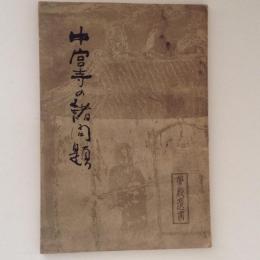 中宮寺の諸問題
鵤叢選書